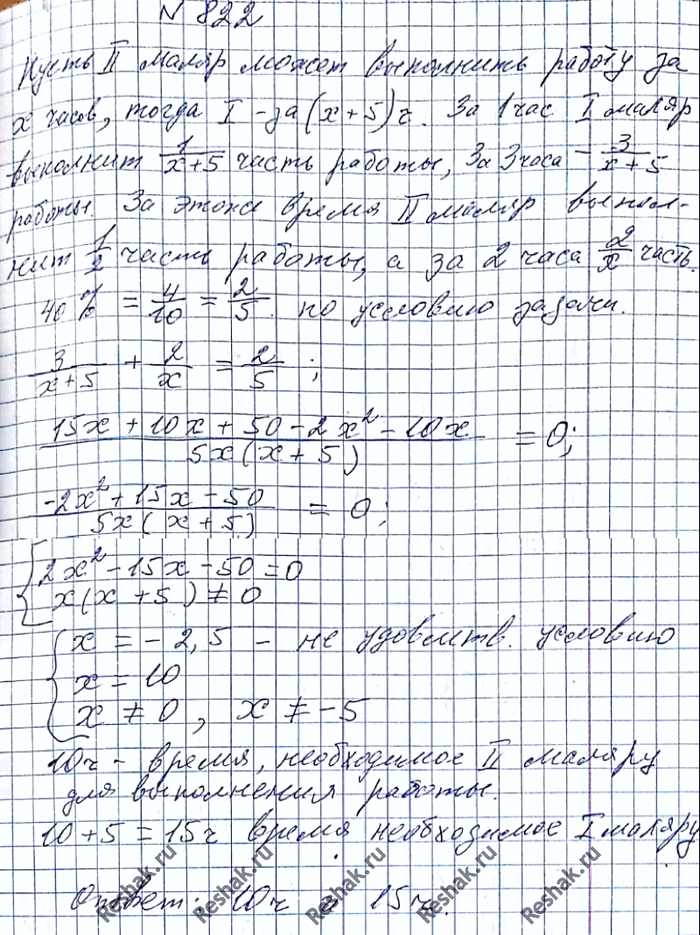 N 822
Пусть II маляр может выполнить работу за
x часов, тогда I - за (x+5) ч. За 1 час I маляр
выполнит 1/(x+5) часть работы, За 3 часа - 3/(x+5)
работы. За это же время II маляр выпол-
нит 1/2 часть работы, а за 2 часа 2/x часть.
40 % = 4/10 = 2/5 по условию задачи.
3/(x+5) + 2/x = 2/5 ;
(15x + 10x + 50 - 2x² - 10x)/(5x(x+5)) = 0;
(-2x² + 15x - 50)/(5x(x+5)) = 0;
{ 2x² - 15x - 50 = 0
x(x+5) ≠ 0
{ x = - 2,5 - не удовлетв. условию
x = 10
x ≠ 0, x ≠ -5
10 ч - время, необходимое II маляру
для выполнения работы.
10 + 5 = 15 ч время необходимое I маляру.
Ответ: 10 ч и 15 ч.
Reshak.ru Reshak.ru Reshak.ru Reshak.ru Reshak.ru